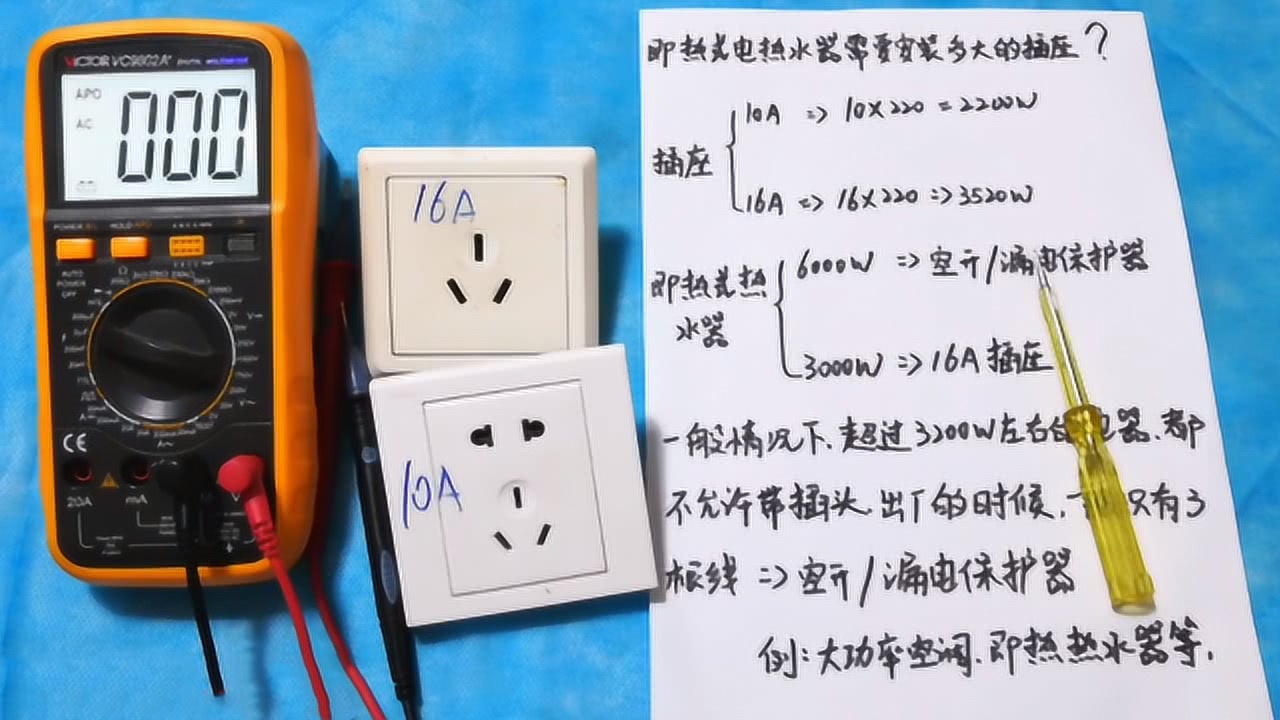 VICTOR VC9802A+
APO
AC
000
POWER
HOLD
AUTO
POWER
OFF
CE
20A
mA
V
16A
10A
即热式电热水器需要安装多大的插座？
插座
10A => 10×220 = 2200W
16A => 16×220 => 3520W
即热式热
水器
6000W => 空开/漏电保护器
3000W => 16A 插座
一般情况下、超过3200W左右 电器、都
不允许带插头、出厂的时候、只有3
根线 => 空开/漏电保护器
例：大功率空调、即热热水器等.